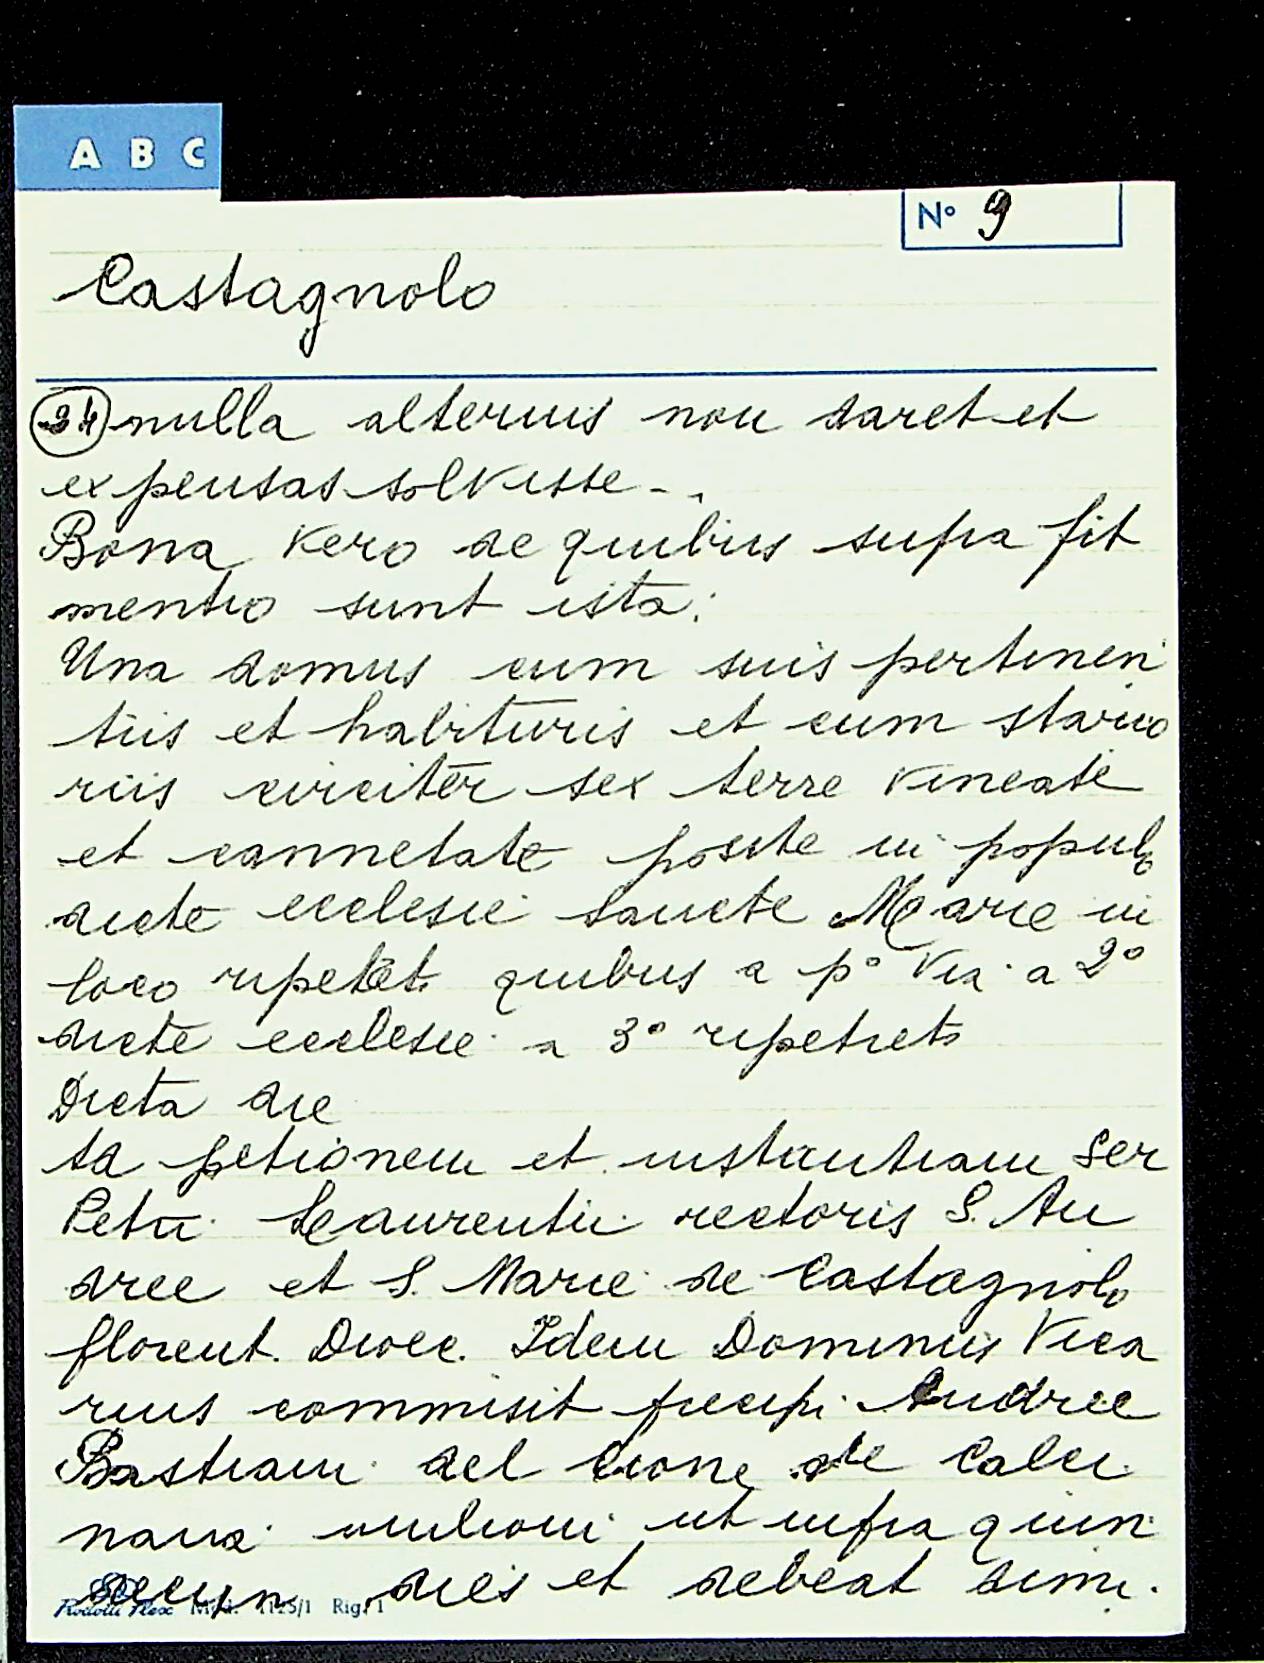 A B C
N° 9
Castagnolo
24 nulla alterius non daret et
expensas solvisse - .
Bona vero de quibus supra fit
mentio sunt ista:
Una domus cum suis pertinen
tiis et habituris et cum stario
riis circiter sex terre vineate
et cannetate posite in populo
dicte ecclesie Sancte Marie in
loco quibus a p° via a 2°
dicte ecclesie a 3°
Dicta die
ta petionem et instantiam Ser
Petri Laurentii rectoris S. An
dree et S. Marie de Castagnolo
florent. Dioec. Idem Dominus Vica
rius commisit precipi Andree
Bastiani del Cione de Calci
naria ut infra quin
dies et debeat dimi.
Mod. 1125/1 Rig. 1